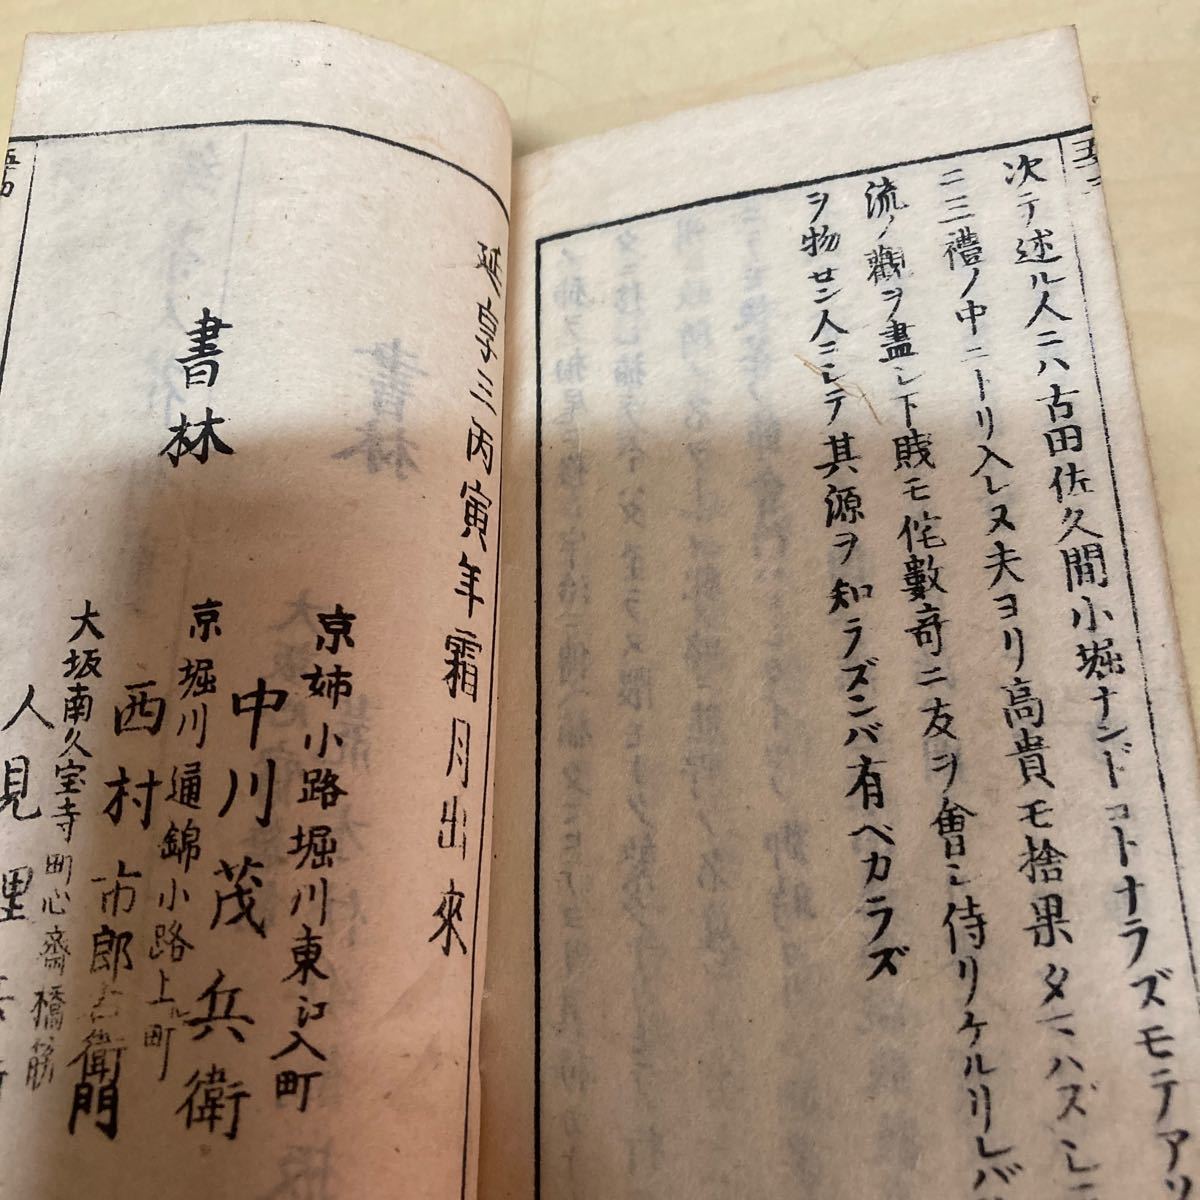 次テ述ル人ニハ古田佐久間小堀ナンドコトナラズモテアリ
ニ三禮ノ中ニトリ入レヌ夫ヨリ高貴モ捨果タマハズシテ
流ノ觀ヲ盡シ下賤モ侘數奇ニ友ヲ會シ侍リケルリレバ
ヲ物セン人ニシテ其源ヲ知ラズンバ有ベカラズ
延享三丙寅年霜月出來
書林
京姉小路堀川東江入町
中川茂兵衛
京堀川通錦小路上ル町
西村市郎右衛門
大坂南久宝寺町心斎橋筋
人見